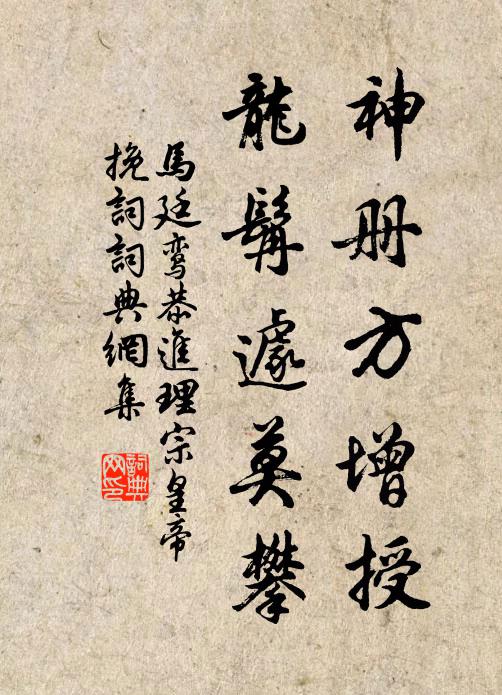 神册方增授
龍髯遽莫攀
馬廷鸞恭進理宗皇帝
挽詞詞典網集
詞典网印